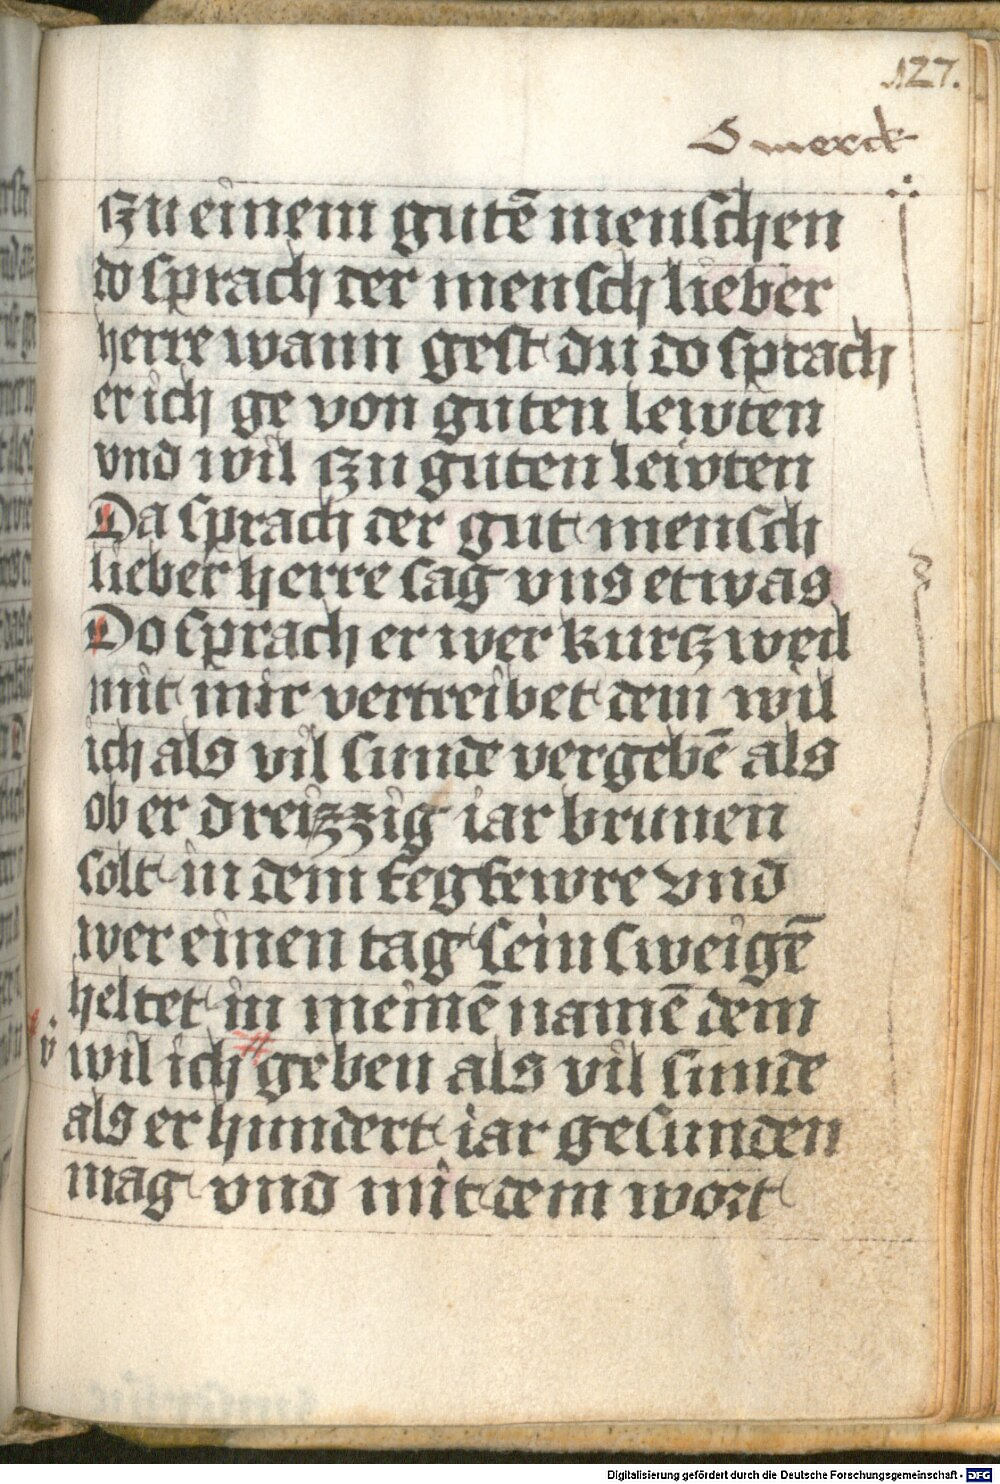 127.
O merck
czu einem gutē menschen
do sprach der mensch lieber
herre wann gest du do sprach
er ich ge von guten lewten
vnd wil czu guten lewten
Da sprach der gut mensch
lieber herre sag vns etwas
Do sprach er wer kurcz weil
mit mir vertreibet dem wil
ich als vil sunde vergebē als
ob er dreizzig iar brunen
solt in dem fegfewre vnd
wer einen tag sein sweigē
heltet in meinē namē dem
v̈ wil ich geben als vil sunde
als er hundert iar gesunden
mag vnd mit dem wort
Digitalisierung gefördert durch die Deutsche Forschungsgemeinschaft - DFG